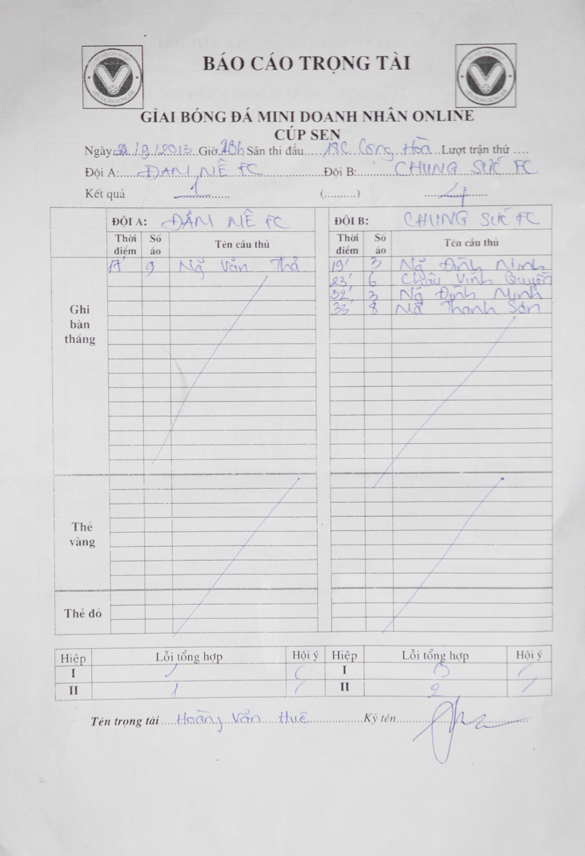 BÁO CÁO TRỌNG TÀI
GIẢI BÓNG ĐÁ MINI DOANH NHÂN ONLINE
CÚP SEN
Ngày /9/2013 Giờ Sân thi đấu Cộng Hòa Lượt trận thứ ....
Đội A: ĐAM MÊ FC Đội B: CHUNG SỨC FC
Kết quả 1 (..........) 4
ĐỘI A: ĐAM MÊ FC ĐỘI B: CHUNG SỨC FC
Thời điểm Số áo Tên cầu thủ Thời điểm Số áo Tên cầu thủ
Ghi bàn thắng
9 Ng Văn Thả 19' 3 Ng Đình Minh
23' 6 Châu Vĩnh Quyền
32' 3 Ng Đình Minh
35' 8 Ng Thanh Sơn
Thẻ vàng
Thẻ đỏ
Hiệp Lỗi tổng hợp Hội ý Hiệp Lỗi tổng hợp Hội ý
I I
II 1 II 2
Tên trọng tài Hoàng Văn Huê Ký tên